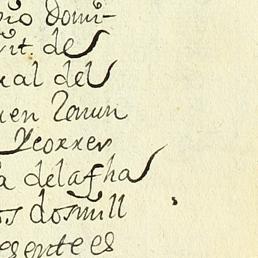 pio domi-
vit. des
ual del
uen Renun
Xcorrer
a delafha
os dosmill
esente es